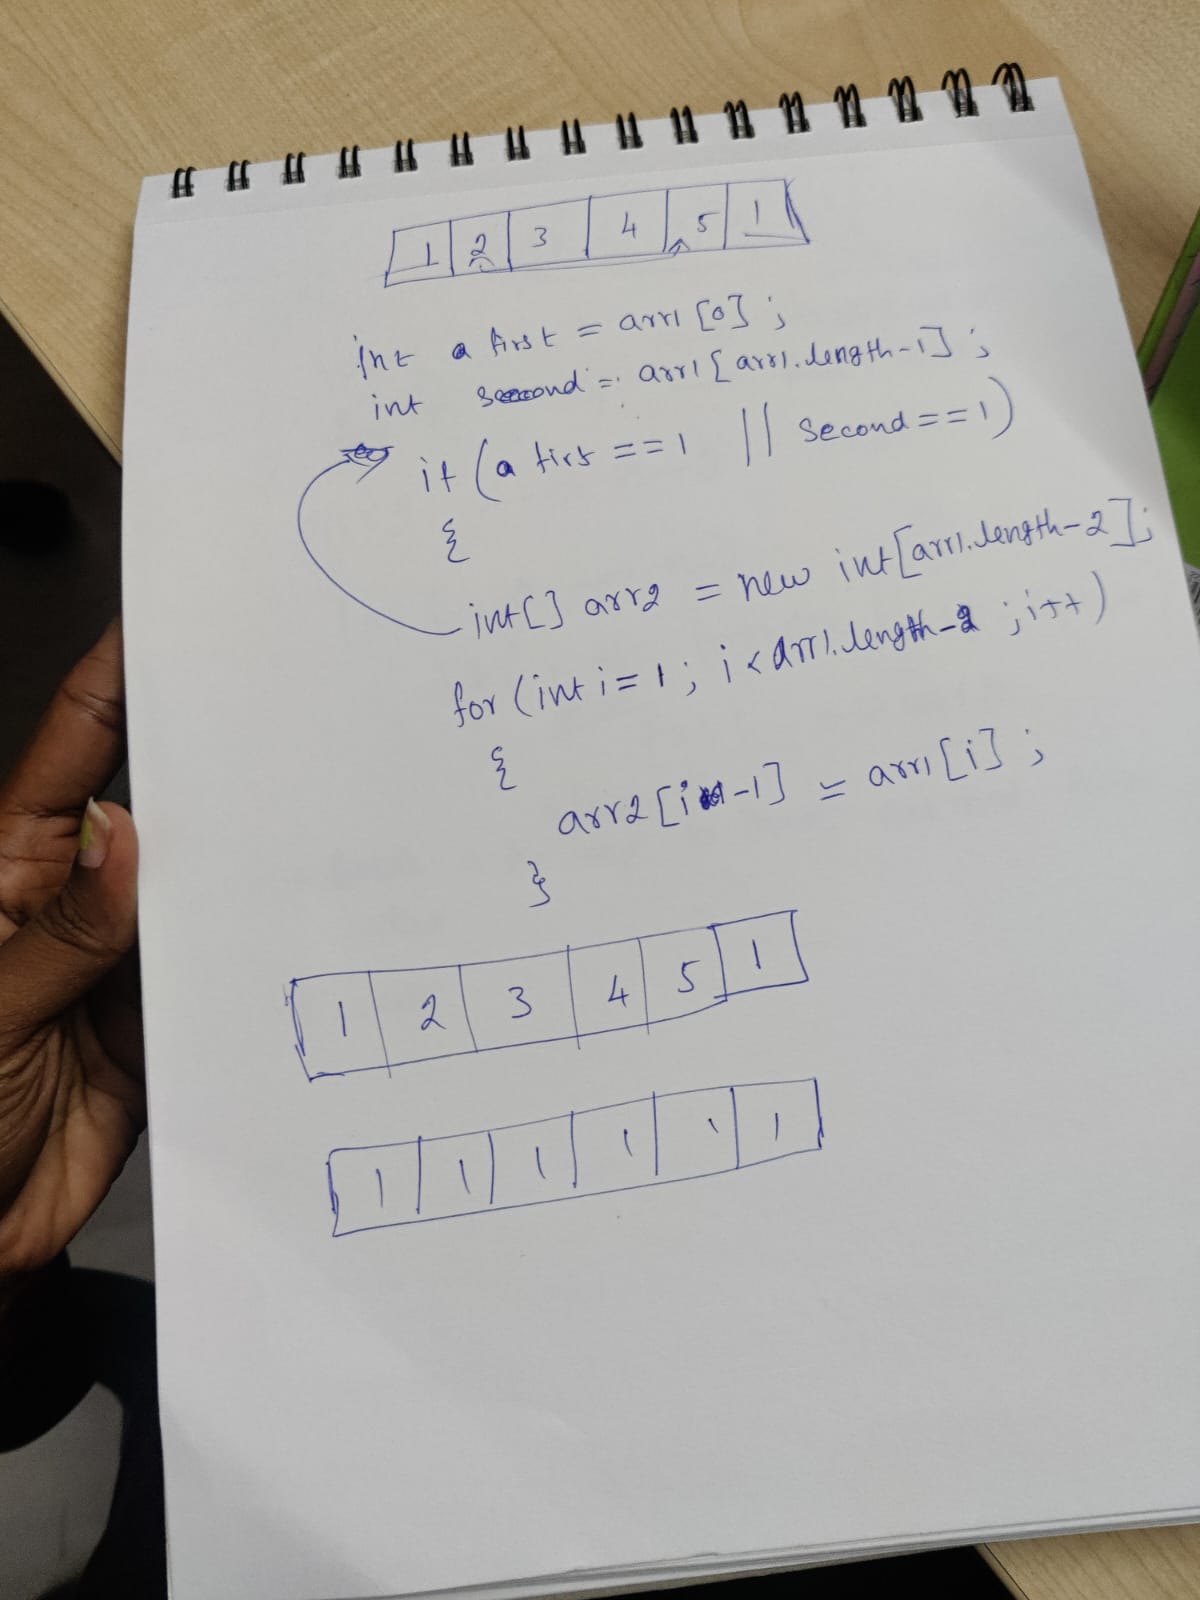 1 2 3 4 5 1
int a first = arr1 [0] ;
int second = arr1 [ arr1.length-1] ;
if ( a first == 1 || second == 1 )
{
int[] arr2 = new int[arr1.length-2];
for (int i = 1 ; i < arr1.length-2 ; i++ )
{
arr2 [i -1] = arr1 [i] ;
}
1 2 3 4 5 1
1 1 1 1 1 1